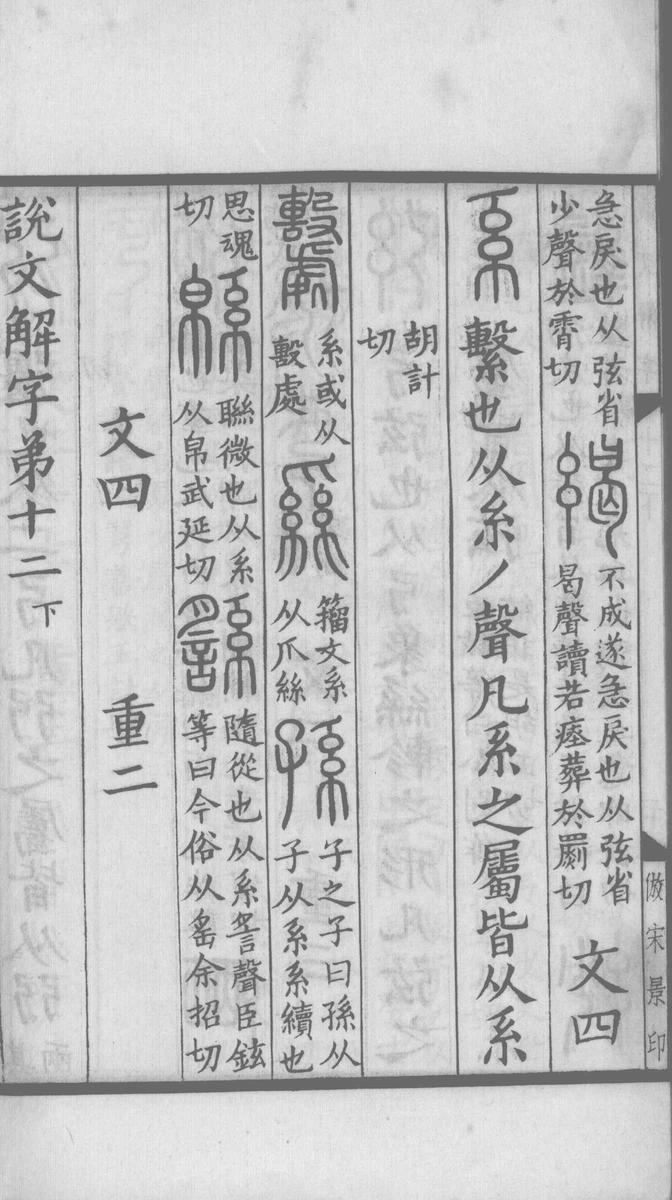 急戾也从弦省少聲於霄切 不成遂急戾也从弦省曷聲讀若瘞葬於罽切 文四
系 繫也从糸丿聲凡系之屬皆从系
胡計切
系或从𣪠處 籀文系从爪絲 孫 子之子曰孫从子从系系續也
思魂切 緜 聯微也从系从帛武延切 䌛 隨從也从系䚻聲臣鉉等曰今俗从䍃余招切
文四 重二
說文解字弟十二下
倣宋景印